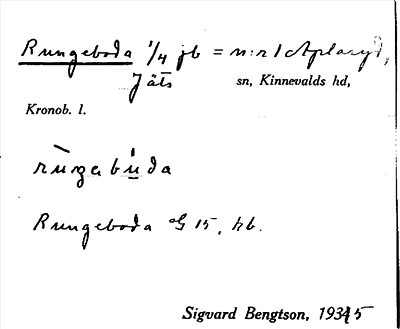 Rungeboda 1/4 jb = n:r 1 Aplaryd,
Jäts sn, Kinnevalds hd,
Kronob. l.
rùŋabúda
Rungeboda G 15, hb.
Sigvard Bengtson, 1935